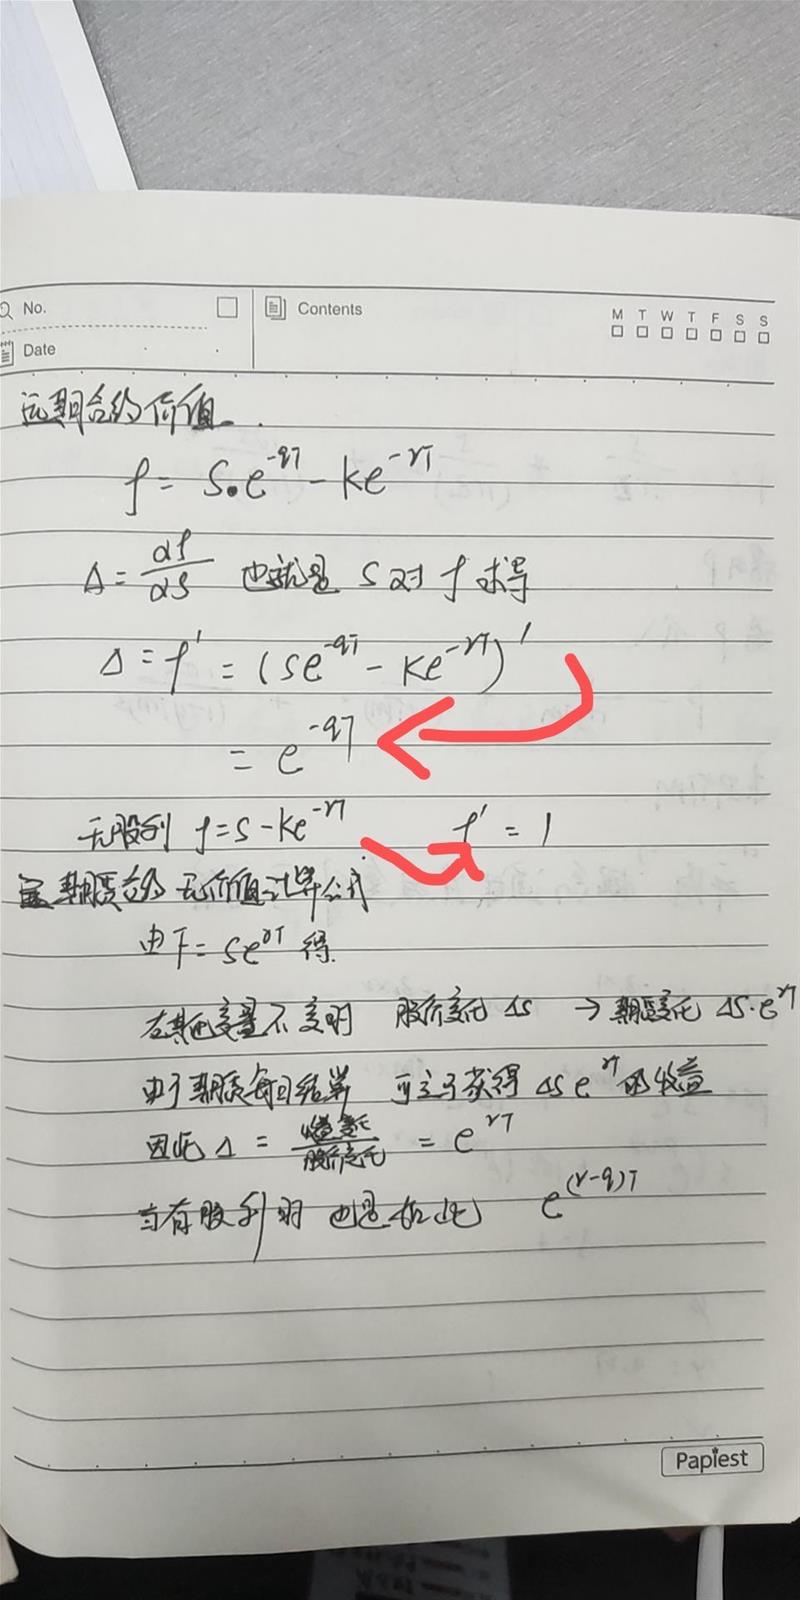 No.
Contents
M T W T F S S
Date
远期合约价值.
f = S₀e^{-qT} - Ke^{-rT}
Δ = df/dS 也就是 S对 f 求导
Δ = f' = (Se^{-qT} - Ke^{-rT})'
= e^{-qT}
无股利 f = S - Ke^{-rT} f' = 1
期货合约 无价值计算公式
由F = Se^{rT} 得.
在其他变量不变时 股价变化 ΔS → 期货变化 ΔS·e^{rT}
由于期货每日结算 可立马获得 ΔSe^{rT} 的收益
因此 Δ = 收益变化/股价变化 = e^{rT}
当有股利时 也是如此 e^{(r-q)T}
Papiest